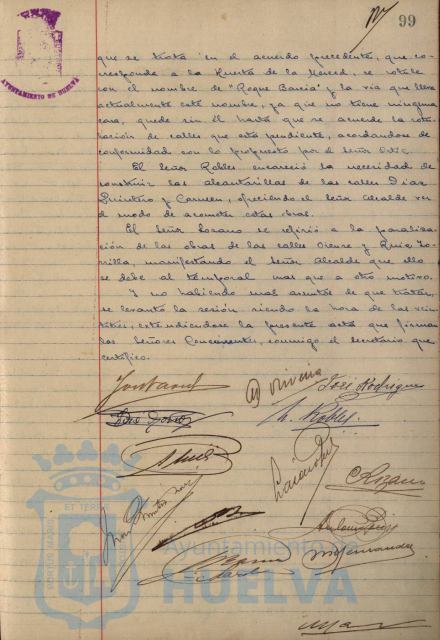 99
AYUNTAMIENTO DE HUELVA
que se trata en el acuerdo precedente, que co-
rresponde a la Huerta de la Merced, se rotule
con el nombre de "Roque Barcia" y la via que lleva
actualmente este nombre, ya que no tiene ninguna
casa, quede sin él hasta que se acuerde la rotu-
lación de calles que está pendiente, acordandose de
conformidad con lo propuesto por el Señor
El Señor Robles, encareció la necesidad de
construir las alcantarillas de las calles Diaz
Quintero y Carmen, ofreciendo el Señor Alcalde ver
el modo de acometer estas obras.
El Señor Lozano se refirió a la paraliza-
ción de las obras de las calles Orense y Ruiz Zo-
rrilla, manifestando el Señor Alcalde que ello
se debe al temporal mas que a otro motivo.
Y no habiendo mas asuntos de que tratar,
se levantó la sesión siendo la hora de las vein-
titres, extendiendose la presente acta que firman
los Señores Concurrentes, conmigo el secretario que
certifico.
José Rodriguez
Robles
C Lozano
M Fernandez
Ayuntamiento de
HUELVA